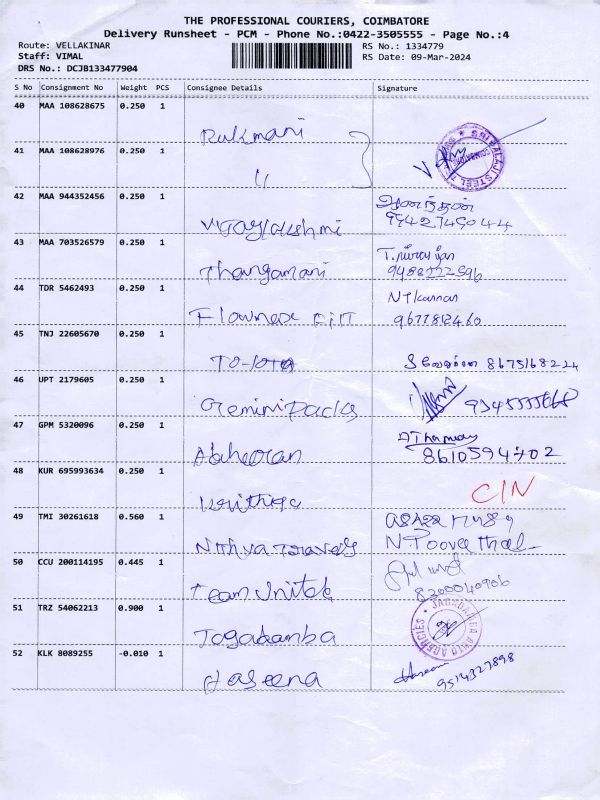 THE PROFESSIONAL COURIERS, COIMBATORE
Delivery Runsheet - PCM - Phone No.:0422-3505555 - Page No.:4
Route: VELLAKINAR
RS No.: 1334779
Staff: VIMAL
RS Date: 09-Mar-2024
DRS No.: DCJB133477904
S No Consignment No Weight PCS Consignee Details Signature
40 MAA 108628675 0.250 1
Rukmani
41 MAA 108628976 0.250 1
"
SRI BALAJI STEEL
42 MAA 944352456 0.250 1
ஆனந்தன்
Vijayalakshmi
9442749044
43 MAA 703526579 0.250 1
Thangamani
44 TDR 5462493 0.250 1
9677812460
45 TNJ 22605670 0.250 1
8675168224
46 UPT 2179605 0.250 1
Gemini Packs
47 GPM 5320096 0.250 1
8610594702
48 KUR 695993634 0.250 1
C/N
Krithiga
49 TMI 30261618 0.560 1
N Poovathal
Nithya Travels
50 CCU 200114195 0.445 1
Team Unitek
8200040906
51 TRZ 54062213 0.900 1
JAGADAMBA AUTO AGENCIES
Jagadamba
52 KLK 8089255 -0.010 1
Haseena
Haseena
9514327898